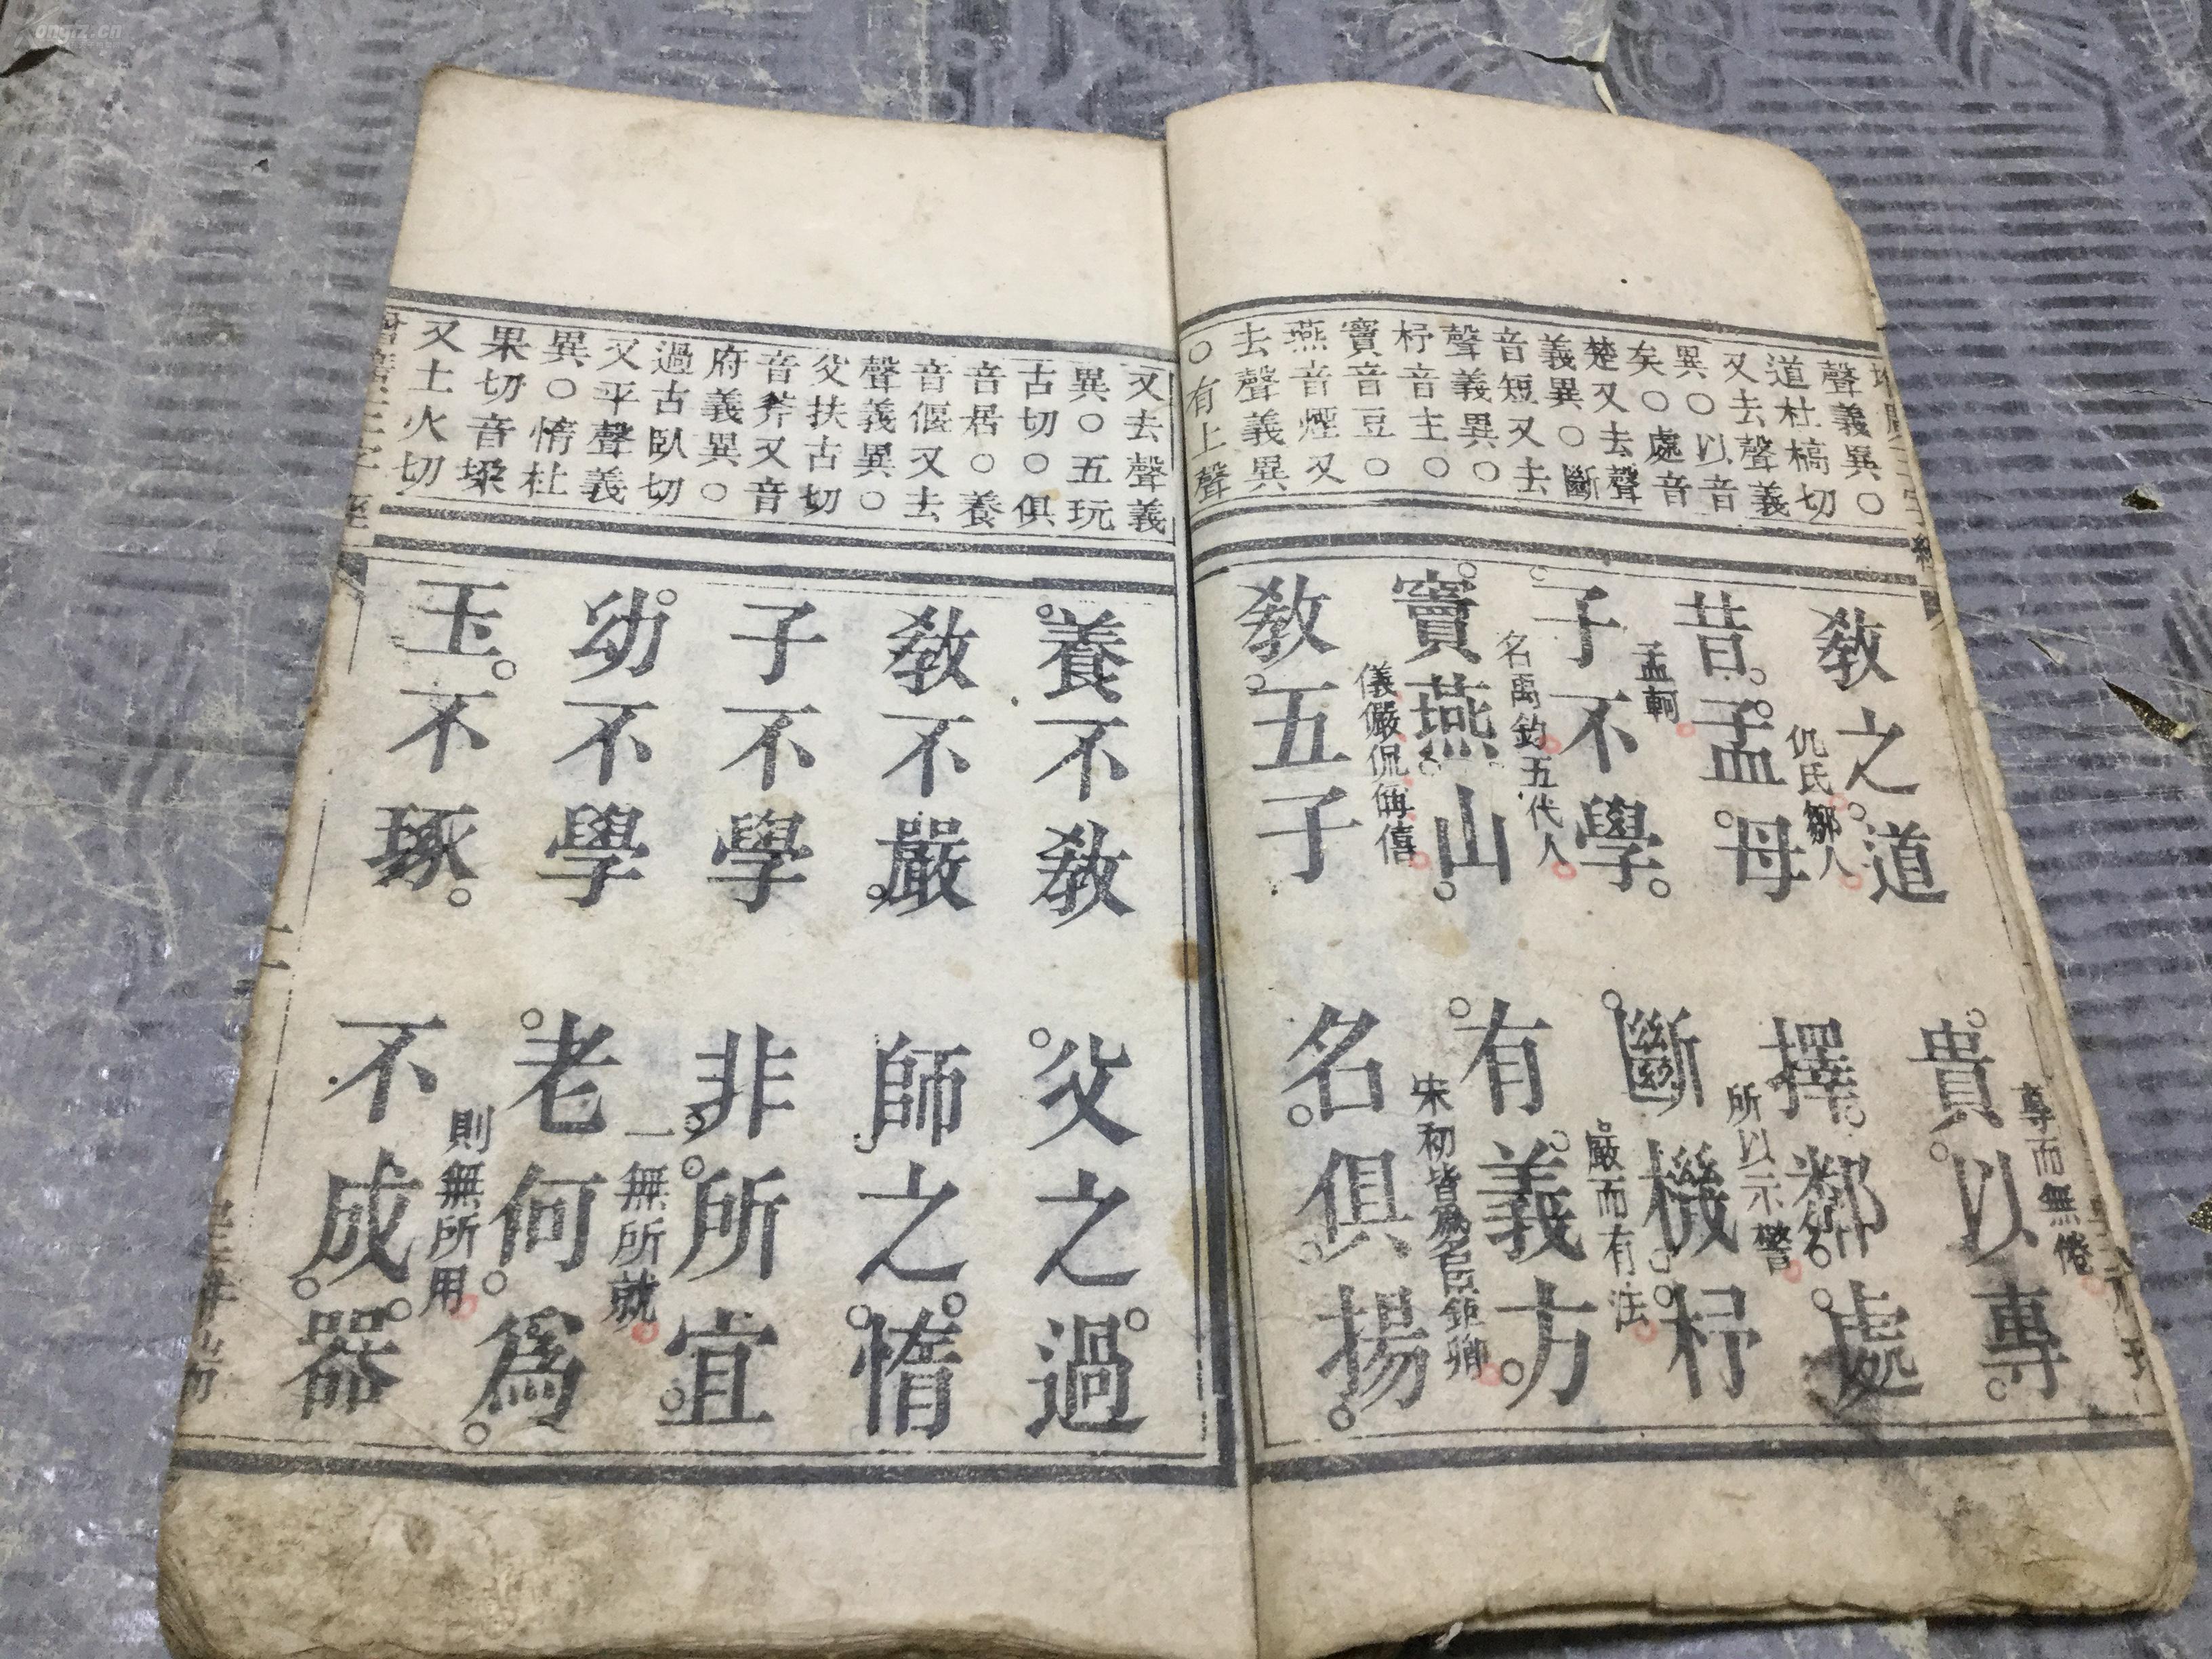 聲義異○
道杜槁切
又去聲義
異○以音
矣○處音
楚又去聲
義異○斷
音短又去
聲義異○
杼音主○
竇音豆○
燕音煙又
去聲義異
○有上聲
敎之道
貴以專
尊而無倦
昔孟母
仉氏鄒人
擇鄰處
所以示警
子不學
孟軻
斷機杼
嚴而有法
竇燕山
名禹鈞五代人
有義方
敎五子
儀儼侃偁僖
名俱揚
宋初皆爲名臣鉅卿
又去聲義
異○五玩
古切○俱
音居○養
音偃又去
聲義異○
父扶古切
音斧又音
府義異○
過古臥切
又平聲義
異○惰杜
果切音垜
又土火切
養不敎
父之過
敎不嚴
師之惰
子不學
非所宜
幼不學
一無所就
老何爲
玉不琢
則無所用
不成器
二